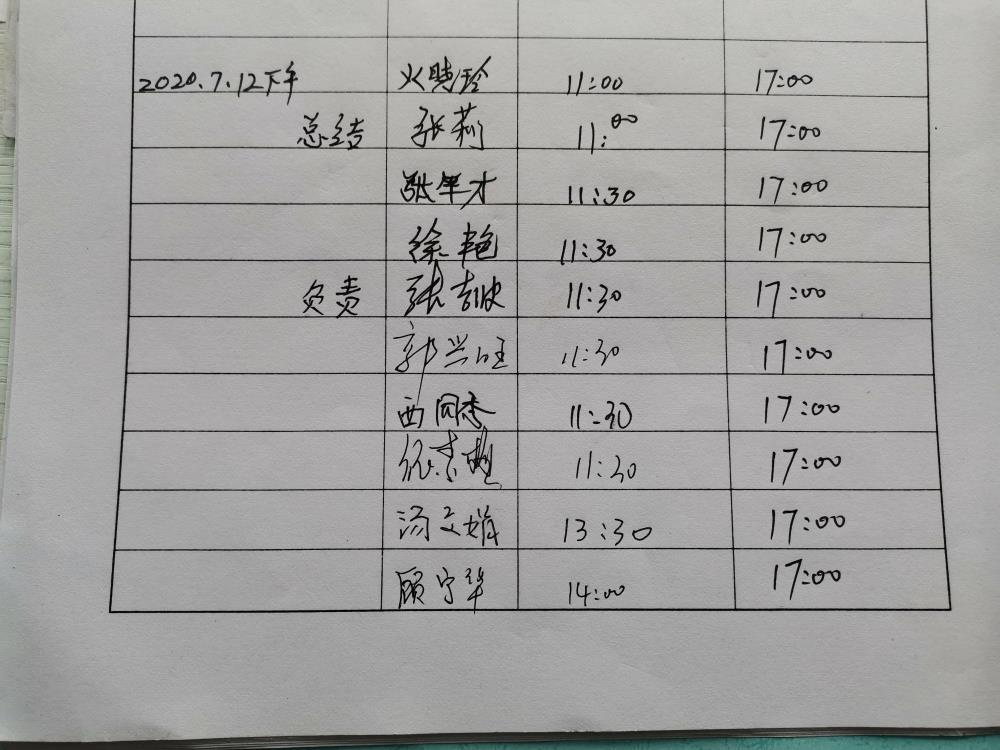 2020.7.12下午 火晓玲 11:00 17:00
总结 张莉 11:00 17:00
张年才 11:30 17:00
徐艳 11:30 17:00
负责 张 11:30 17:00
郭兴旺 11:30 17:00
西同香 11:30 17:00
11:30 17:00
汤文娟 13:30 17:00
顾宁华 14:00 17:00